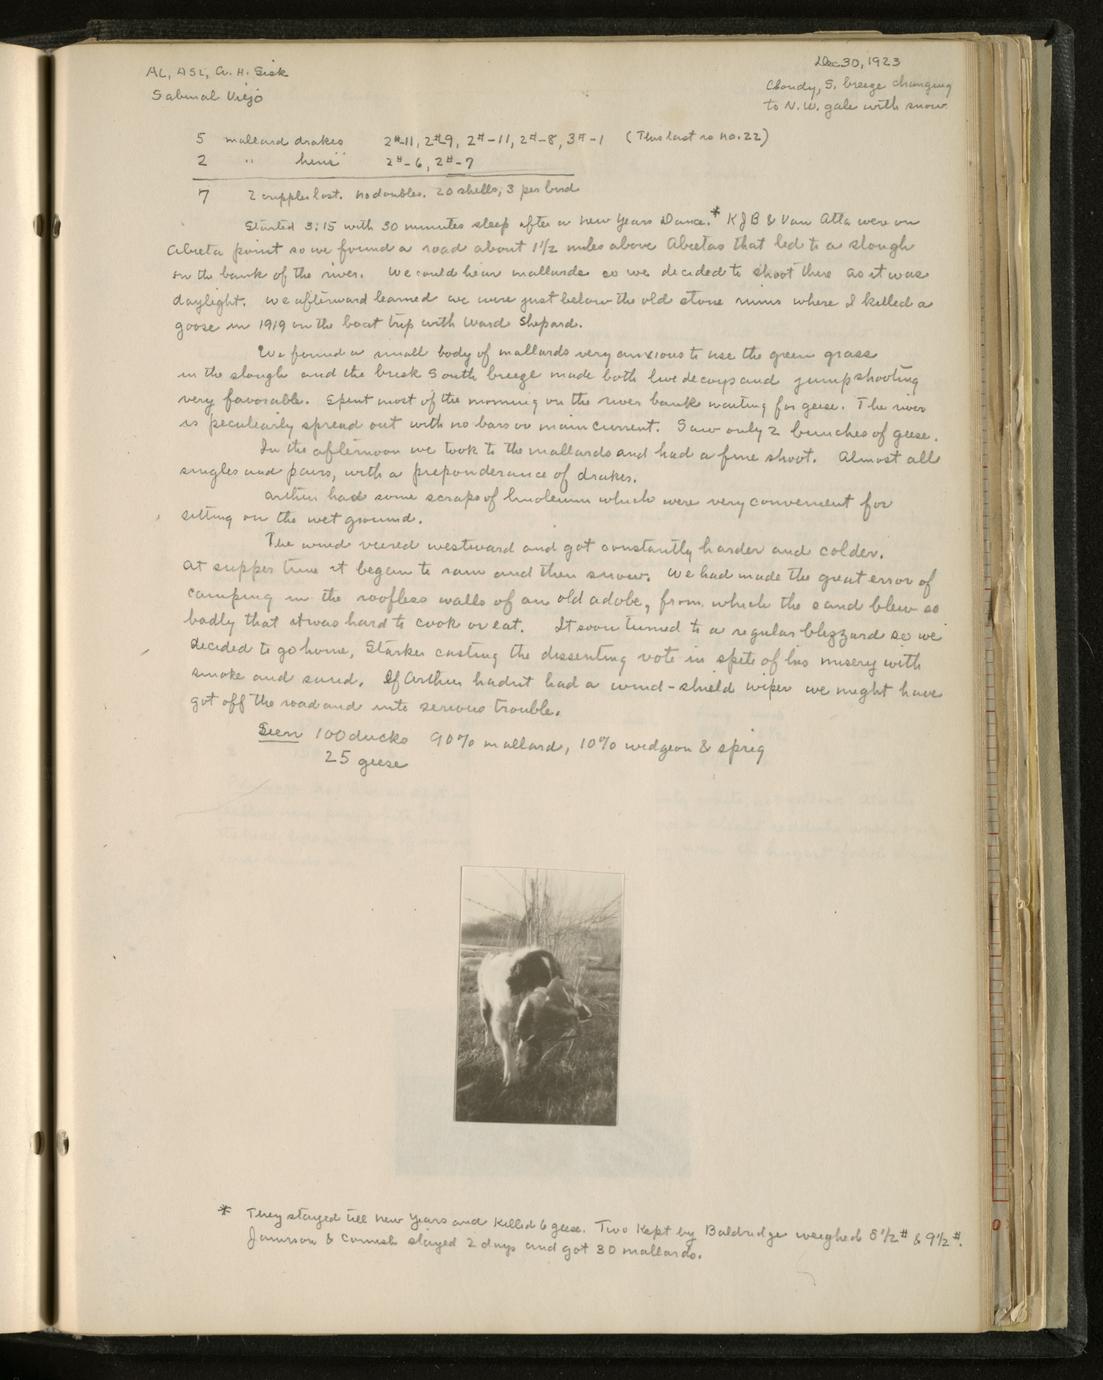 AL, ASL, A. H. Sisk
Dec 30, 1923
Sabinal Viejo
Cloudy, S. breeze changing
to N.W. gale with snow
5 mallard drakes 2#-11, 2#-9, 2#-11, 2#-8, 3#-1 (This last is no. 22)
2 " hens 2#-6, 2#-7
7 2 cripples lost. No doubles. 20 shells, 3 per bird
Started 3:15 with 30 minutes sleep after a New Years Dance.* KJB & Van Atta were on
Abeita point so we found a road about 1 1/2 miles above Abeitas that led to a slough
on the bank of the river. We could hear mallards so we decided to shoot there as it was
daylight. We afterward learned we were just below the old stone ruins where I killed a
goose in 1919 on the boat trip with Ward Shepard.
We found a small body of mallards very anxious to use the green grass
in the slough and the brisk South breeze made both live decoys and jumpshooting
very favorable. Spent most of the morning on the river bank waiting for geese. The river
is peculiarly spread out with no bars or main current. Saw only 2 bunches of geese.
In the afternoon we took to the mallards and had a fine shoot. Almost all
singles and pairs, with a preponderance of drakes.
Arthur had some scraps of linoleum which were very convenient for
sitting on the wet ground.
The wind veered westward and got constantly harder and colder.
At supper time it began to rain and then snow. We had made the great error of
camping in the roofless walls of an old adobe, from which the sand blew so
badly that it was hard to cook or eat. It soon turned to a regular blizzard so we
decided to go home, Starker casting the dissenting vote in spite of his misery with
smoke and sand. If Arthur hadnt had a wind-shield wiper we might have
got off the road and into serious trouble.
Seen 100 ducks 90% mallard, 10% widgeon & sprig
25 geese
* They stayed till New Years and killed 6 geese. Two kept by Baldridge weighed 8 1/2# & 9 1/2#.
Jamison & Cornish stayed 2 days and got 30 mallards.